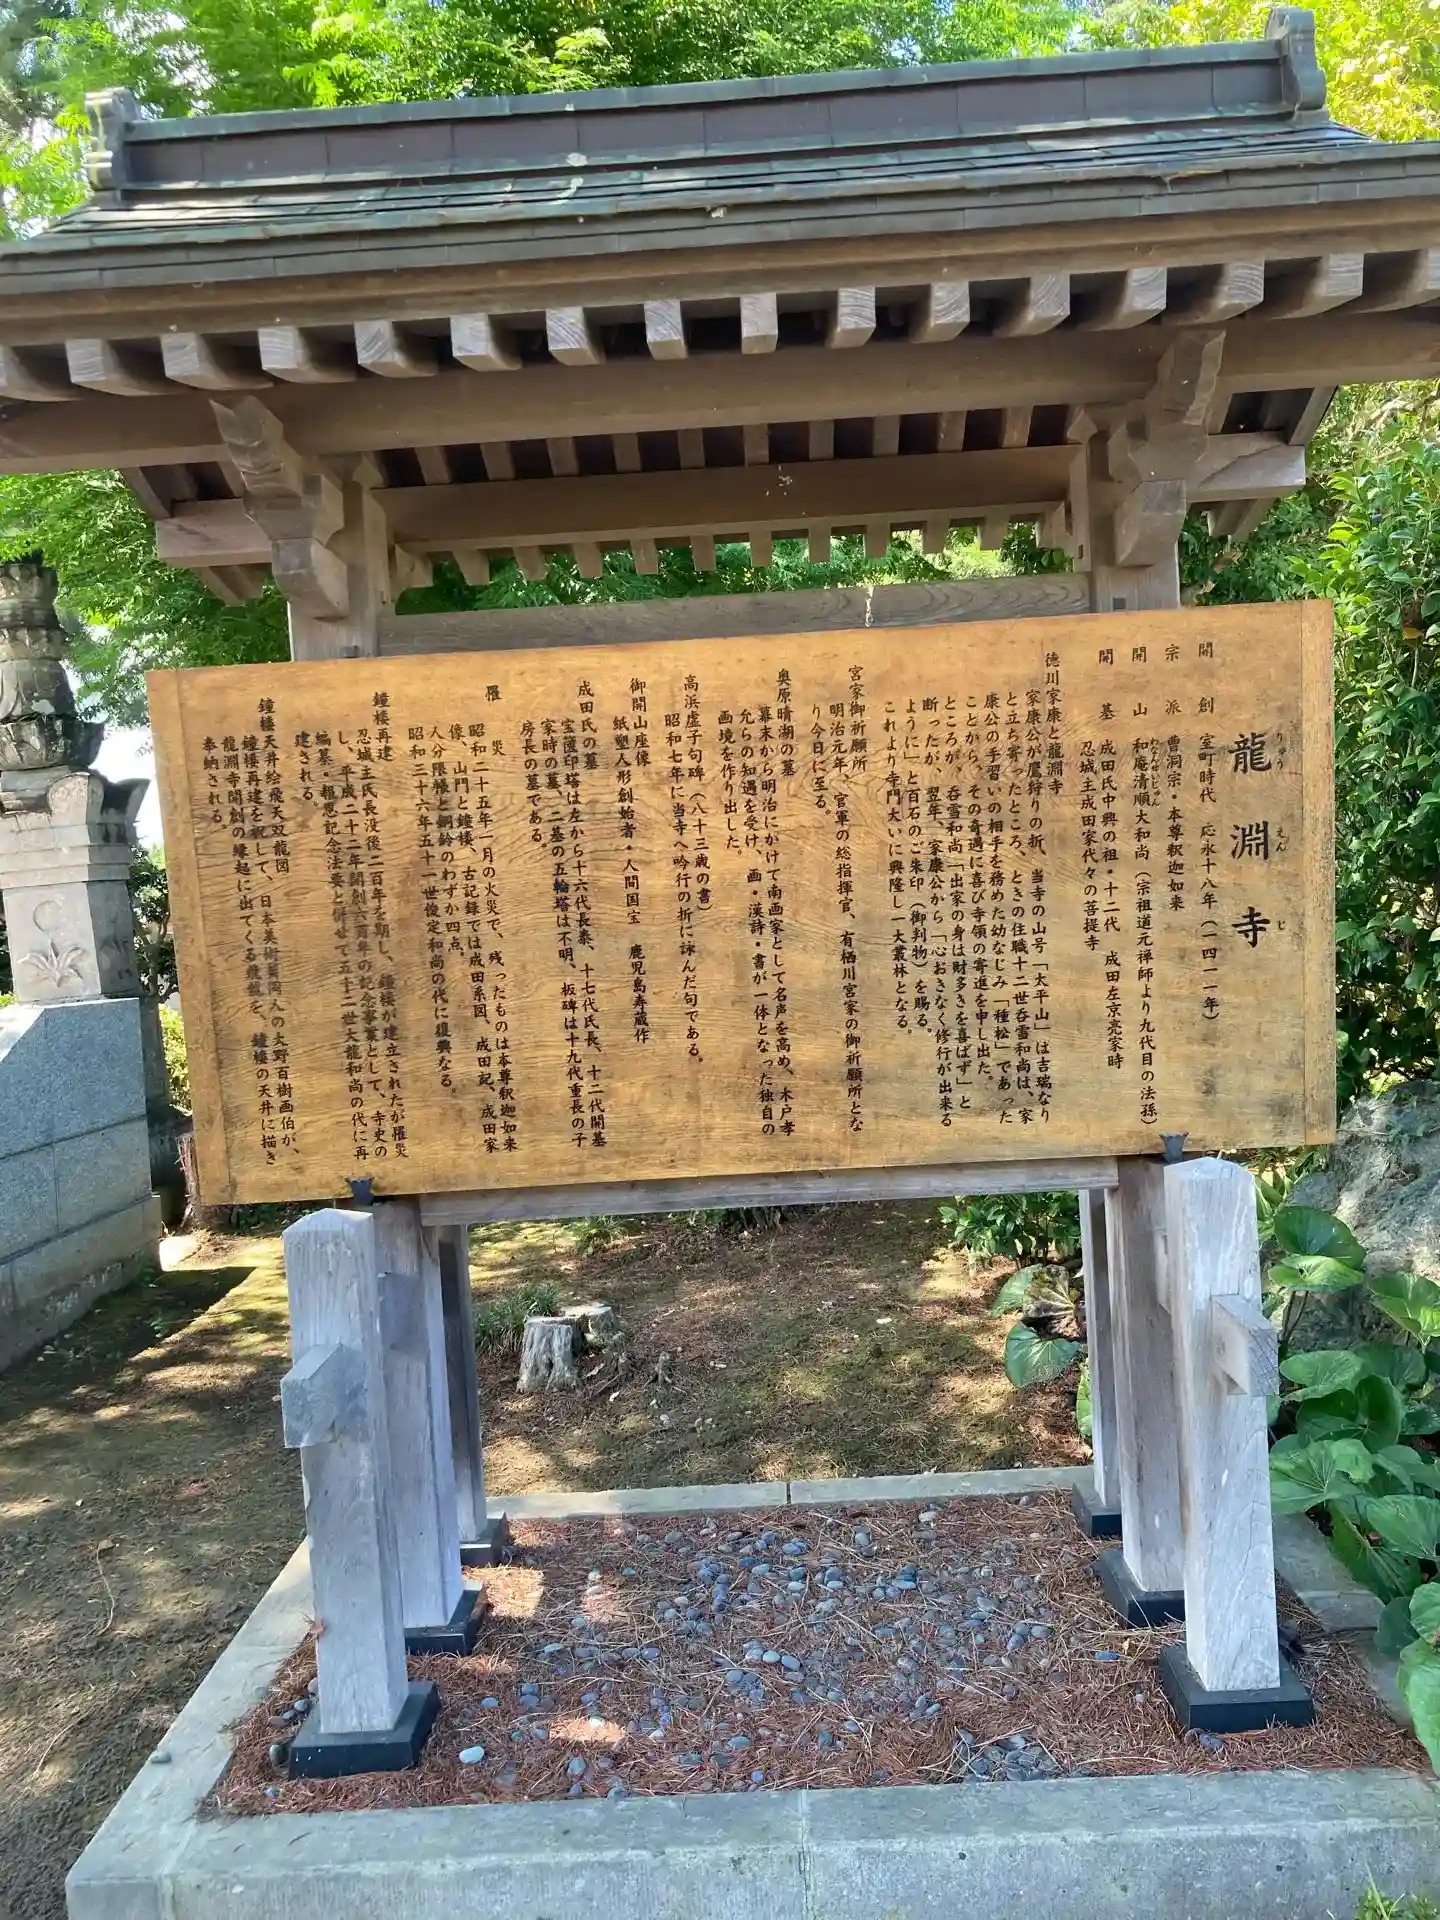 龍淵寺
りゅうえんじ
開創 室町時代 応永十八年(一四一一年)
宗派 曹洞宗・本尊釈迦如来
開山 和庵清順大和尚(宗祖道元禅師より九代目の法孫)
わあんせいじゅん
開基 成田氏中興の祖・十二代 成田左京亮家時
忍城主成田家代々の菩提寺
徳川家康と龍淵寺
家康公が鷹狩りの折、当寺の山号「太平山」は吉瑞なり
と立ち寄ったところ、ときの住職十二世呑雪和尚は、家
康公の手習いの相手を務めた幼なじみ「種松」であった
ことから、その奇遇に喜び寺領の寄進を申し出た。
ところが、呑雪和尚「出家の身は財多きを喜ばず」と
断ったが、翌年、家康公から「心おきなく修行が出来る
ように」と百石のご朱印(御判物)を賜る。
これより寺門大いに興隆し一大叢林となる。
宮家御祈願所
明治元年、官軍の総指揮官、有栖川宮家の御祈願所とな
り今日に至る。
奥原晴湖の墓
幕末から明治にかけて南画家として名声を高め、木戸孝
允らの知遇を受け、画・漢詩・書が一体となった独自の
画境を作り出した。
高浜虚子句碑(八十三歳の書)
昭和七年に当寺へ吟行の折に詠んだ句である。
御開山座像
紙塑人形創始者・人間国宝 鹿児島寿蔵作
成田氏の墓
宝篋印塔は左から十六代長泰、十七代氏長、十二代開基
家時の墓、二基の五輪塔は不明、板碑は十九代重長の子
房長の墓である。
罹災
昭和二十五年一月の火災で、残ったものは本尊釈迦如来
像、山門と鐘楼、古記録では成田系図、成田記、成田家
人分限帳と銅鈴のわずか四点。
昭和三十六年五十一世俊定和尚の代に復興なる。
鐘楼再建
忍城主氏長没後二百年を期し、鐘楼が建立されたが罹災
し、平成二十二年開創六百年の記念事業として、寺史の
編纂・報恩記念法要と併せて五十二世大龍和尚の代に再
建される。
鐘楼天井絵飛天双龍図
鐘楼再建を祝して、日本美術院同人の大野百樹画伯が、
龍淵寺開創の縁起に出てくる飛龍を、鐘楼の天井に描き
奉納される。